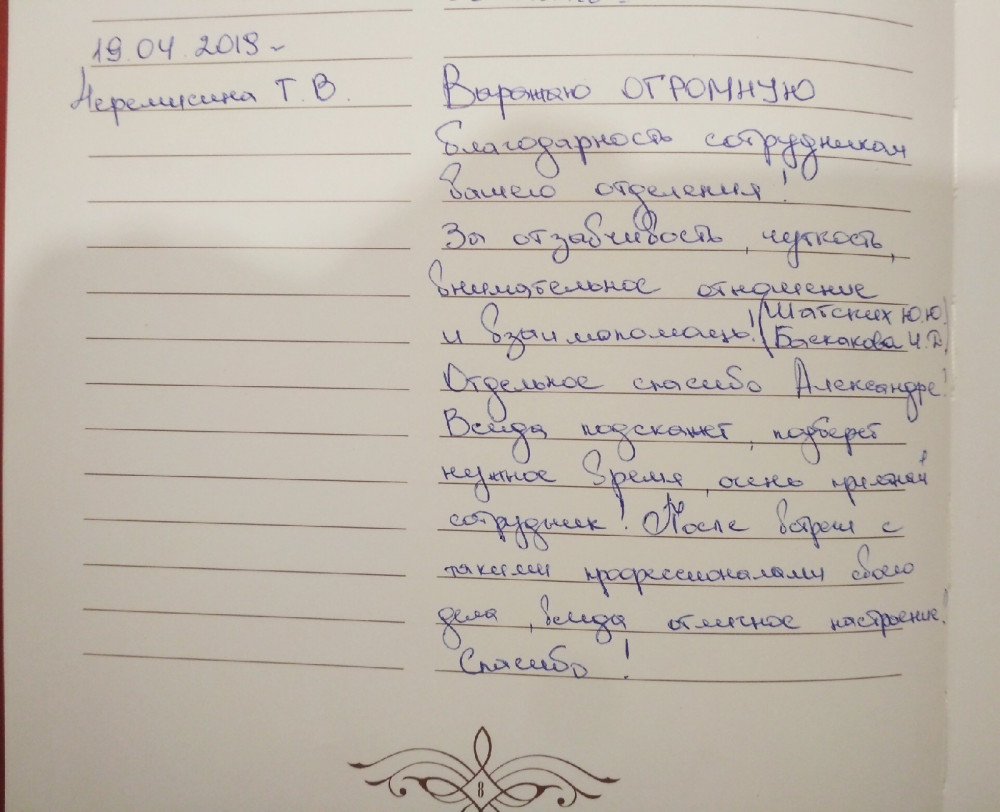 19.04.2019г
Черемисина Т.В.
Выражаю ОГРОМНУЮ
благодарность сотрудникам
вашего отделения!
За отзывчивость, чуткость,
внимательное отношение
и взаимопомощь! (Шатских Ю.Ю.
Баскакова И.Д.)
Отдельное спасибо Александре!
Всегда подскажет, подберет
нужное время, очень
сотрудник! После встречи с
такими профессионалами своего
дела, всегда отличное настроение!
Спасибо!
8